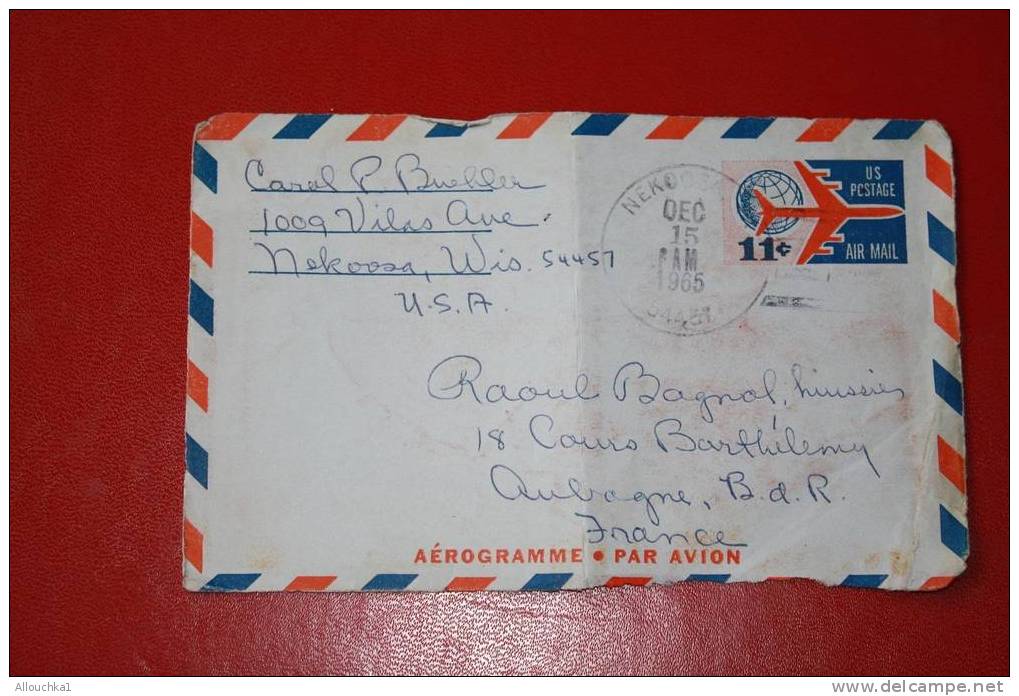 Carol P. Buehler
1009 Vilas Ave.
Nekoosa, Wis. 54457
U.S.A.
NEKOOSA
DEC
15
AM
1965
54457
US
POSTAGE
11¢
AIR MAIL
Raoul Bagnol, huissier
18 Cours Barthélemy
Aubagne, B.d.R.
France
AÉROGRAMME • PAR AVION
Allouchka1
delcampe.net